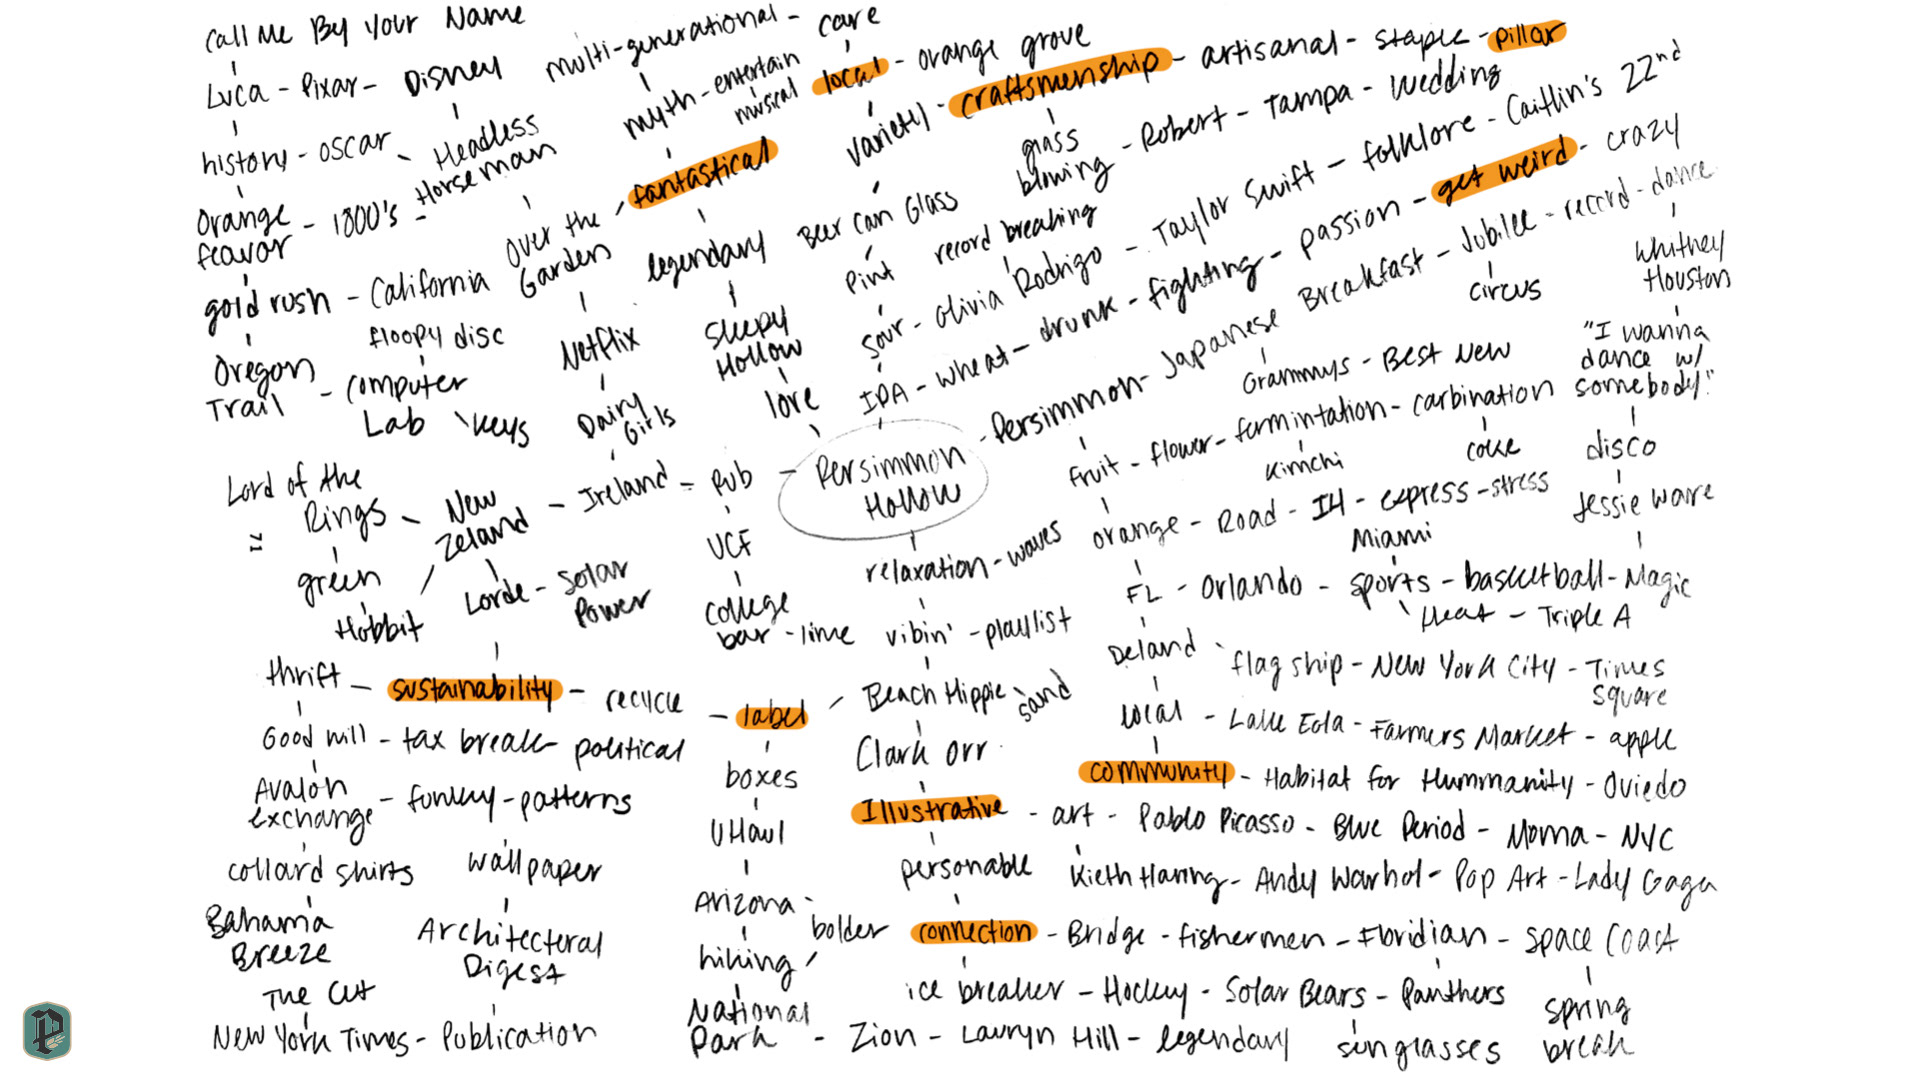 Call Me By Your Name
Luca - Pixar - Disney
multi-generational - care
history - oscar - Headless Horseman
myth - entertain
musical
local - orange grove
variety - craftsmenship - artisanal - staple - pillar
Orange feavor - 1800's -
Over the Garden / fantastical
glass blowing - Robert - Tampa - wedding
gold rush - California
legendary
Beer Can Glass
record breaking
Taylor Swift - folklore - Caitlin's 22nd
Oregon Trail - computer Lab \ keys
floopy disc
Netflix
Sleepy Hollow
Pint
sour - Olivia Rodrigo -
IPA - wheat - drunk - fighting - passion - get weird - crazy
Dairy Girls
lore
Persimmon Hollow
- Persimmon - Japanese Breakfast - Jubilee - record - dance
circus
whitney Houston
"I wanna dance w/ somebody"
disco
Jessie ware
Grammys - Best New
fruit - flower - farmintation - carbination
kimchi
coke
Lord of the Rings - New Zeland - Ireland - Pub -
green
Hobbit
Lorde - Solar Power
UCF
college bar - lime
relaxation - waves
orange - Road - I4 - express - stress
Miami
FL - Orlando - sports - basketball - Magic
Heat - Triple A
vibin' - playlist
Deland - flag ship - New York City - Times Square
thrift - sustainability - recycle - label / Beach Hippie \ sand
local - Lake Eola - Farmers Market - apple
Good will - tax break - political
boxes
Clark orr
community - Habitat for Hummanity - Oviedo
Avalon exchange - funky - patterns
UHaul
Illustrative - art - Pablo Picasso - Blue Period - Moma - NYC
collard shirts
wallpaper
personable
Kieth Haring - Andy Warhol - Pop Art - Lady Gaga
Bahama Breeze
Architecteral Digest
Arizona - bolder
connection - Bridge - fishermen - Floridian - space Coast
hiking /
The Cut
ice breaker - Hockey - Solar Bears - Panthers
spring break
New York Times - Publication
National Park - Zion - Lauryn Hill - legendary
sunglasses
P